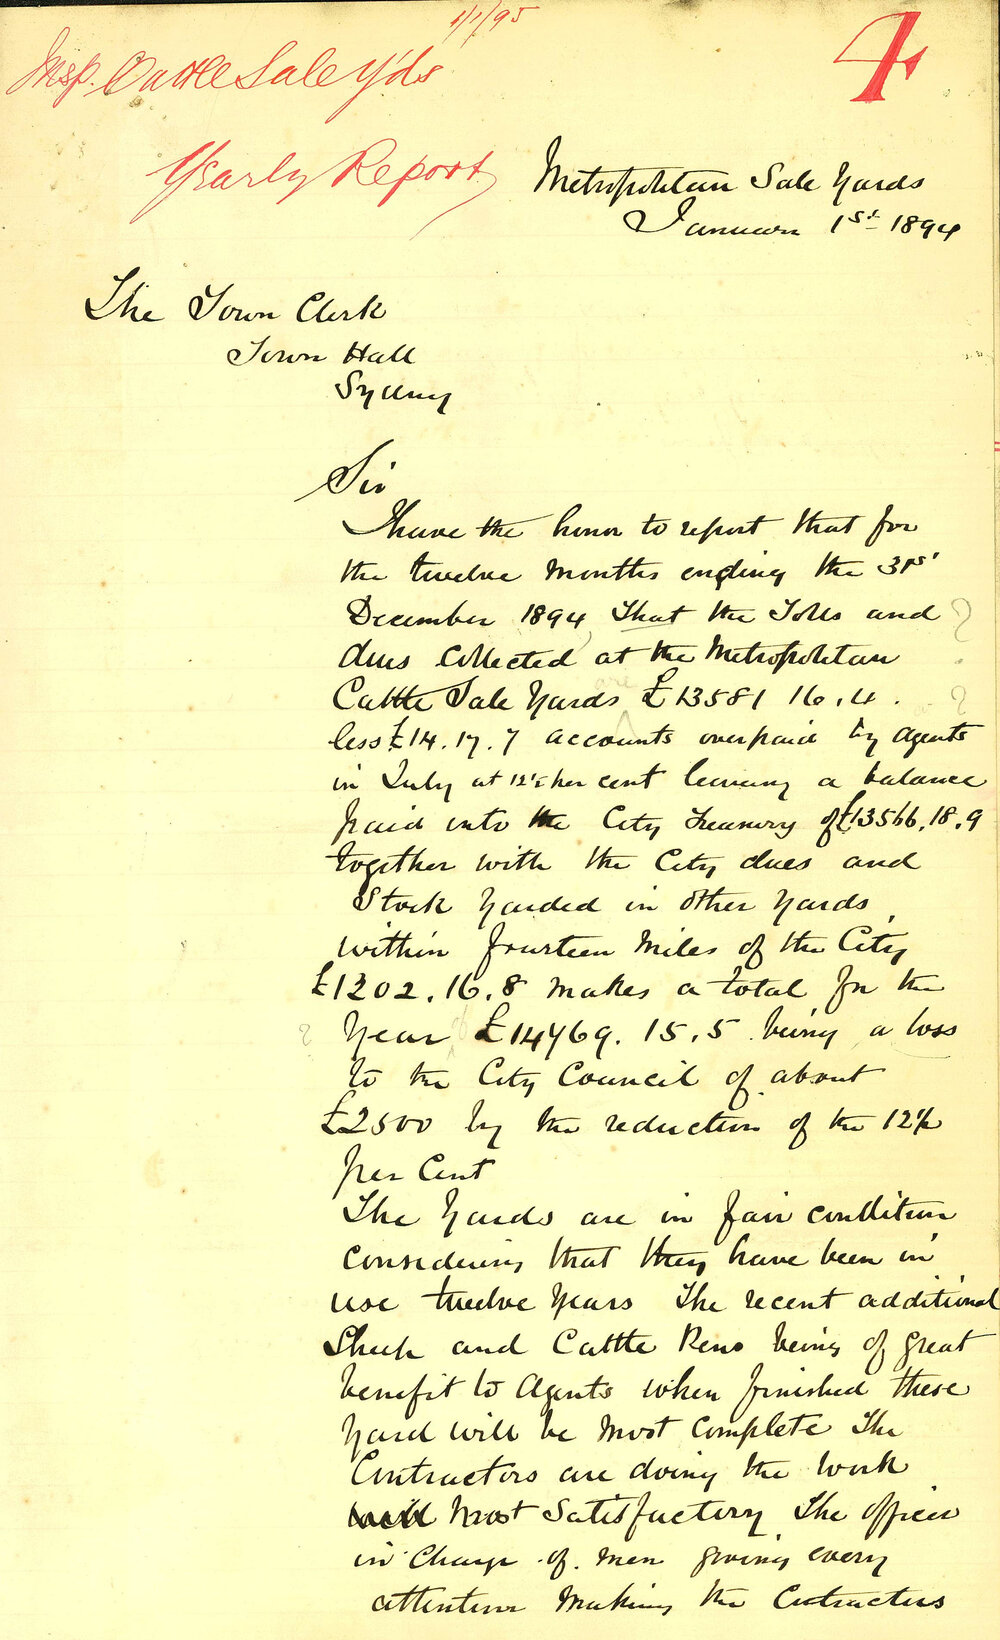 1/1/95
4
Insp. Cattle Sale Yds
Yearly Report
Metropolitan Sale Yards
January 1st 1894
The Town Clerk
Town Hall
Sydney
Sir
I have the honor to report that for
the twelve months ending the 31st
December 1894 that the Tolls and
dues collected at the Metropolitan
Cattle Sale Yards £13581 16.4.
less £14.17.7 accounts overpaid by Agents
in July at 12½ per cent leaving a balance
paid into the City Treasury of £13566.18.9
together with the City dues and
Stock yarded in other yards
within fourteen miles of the City
£1202.16.8 makes a total for the
year £14769.15.5 being a loss
to the City Council of about
£2500 by the reduction of the 12½
per Cent
The Yards are in fair condition
considering that they have been in
use twelve years The recent additional
Sheep and Cattle Pens being of great
benefit to Agents when finished these
yard will be most complete The
Contractors are doing the work
well most satisfactory The officer
in charge of men giving every
attention making the Contractors